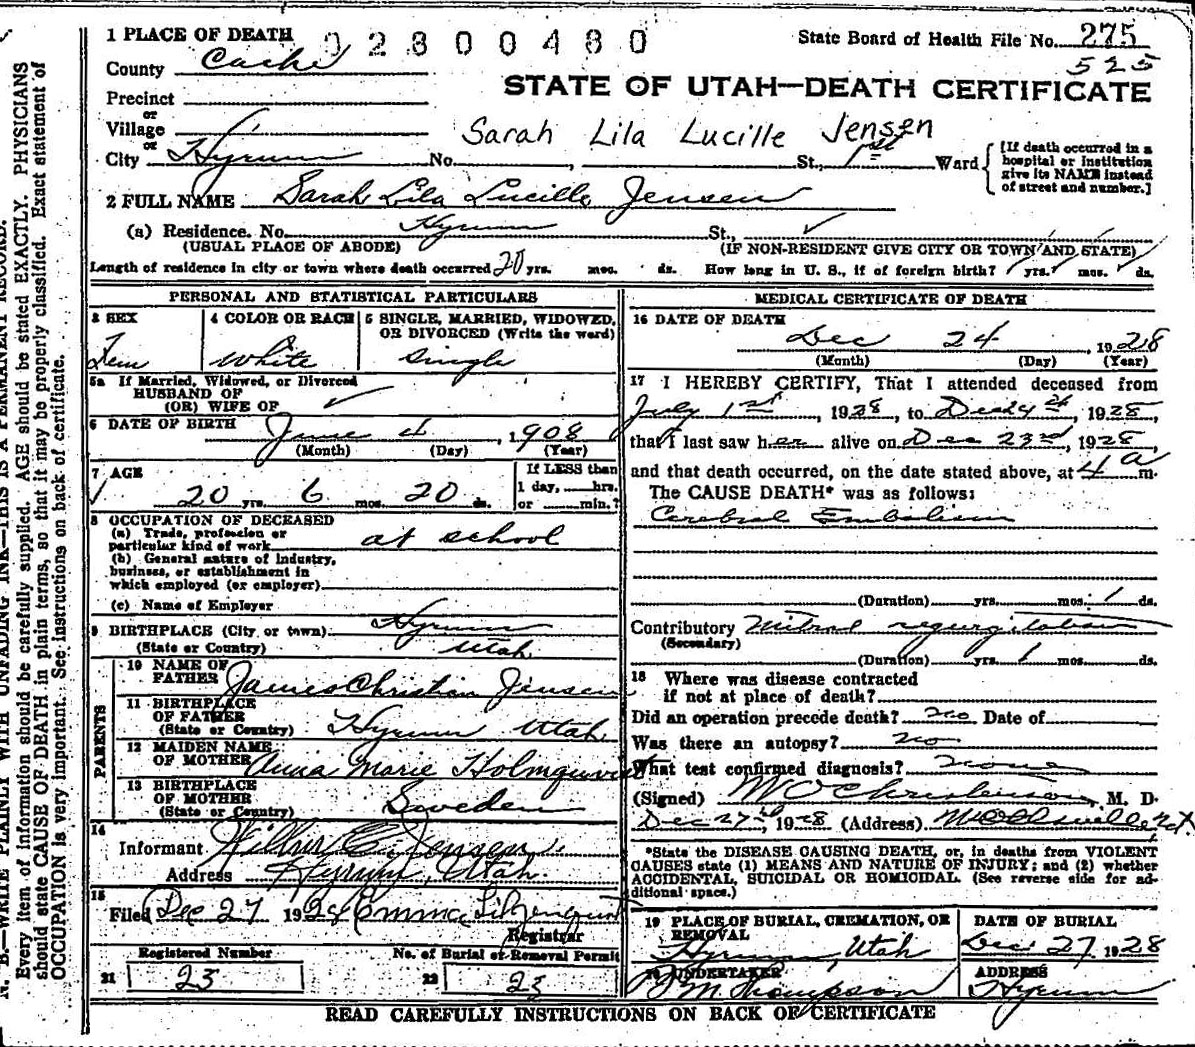 1 PLACE OF DEATH 02800480 State Board of Health File No. 275
County Cache 525
STATE OF UTAH—DEATH CERTIFICATE
Precinct
or
Village
or
Sarah Lila Lucille Jensen
City Hyrum No. , St., 1st Ward
[If death occurred in a hospital or institution give its NAME instead of street and number.]
2 FULL NAME Sarah Lila Lucille Jensen
(a) Residence. No. Hyrum St., ✓
(USUAL PLACE OF ABODE) (IF NON-RESIDENT GIVE CITY OR TOWN AND STATE)
Length of residence in city or town where death occurred 20 yrs. mos. ds. How long in U. S., if of foreign birth? yrs. mos. ds.
PERSONAL AND STATISTICAL PARTICULARS
3 SEX
Fem
4 COLOR OR RACE
White
5 SINGLE, MARRIED, WIDOWED,
OR DIVORCED (Write the word)
Single
5a If Married, Widowed, or Divorced
HUSBAND OF
(OR) WIFE OF ✓
6 DATE OF BIRTH June 4, 1908
(Month) (Day) (Year)
7 AGE
20 yrs. 6 mos. 20 ds.
If LESS than
1 day, hrs.
or min.?
8 OCCUPATION OF DECEASED
(a) Trade, profession or
particular kind of work at school
(b) General nature of industry,
business, or establishment in
which employed (or employer)
(c) Name of Employer
9 BIRTHPLACE (City or town) Hyrum
(State or Country) Utah
PARENTS
10 NAME OF
FATHER James Christian Jensen
11 BIRTHPLACE
OF FATHER
(State or Country) Hyrum Utah
12 MAIDEN NAME
OF MOTHER Anna Marie Holmquist
13 BIRTHPLACE
OF MOTHER
(State or Country) Sweden
14
Informant Wilbur C. Jensen
Address Hyrum, Utah
15
Filed Dec 27 1928 Emma Liljenquist
Registrar
Registered Number No. of Burial or Removal Permit
21 23 22 23
MEDICAL CERTIFICATE OF DEATH
16 DATE OF DEATH
Dec 24, 1928
(Month) (Day) (Year)
17 I HEREBY CERTIFY, That I attended deceased from
July 1st, 1928, to Dec 24th, 1928,
that I last saw her alive on Dec 23rd, 1928,
and that death occurred, on the date stated above, at 4 a m.
The CAUSE DEATH* was as follows:
Cerebral Embolism
(Duration) yrs. mos. 1 ds.
Contributory Mitral regurgitation
(Secondary)
(Duration) yrs. 1 mos. ds.
18 Where was disease contracted
if not at place of death?
Did an operation precede death? no Date of
Was there an autopsy? no
What test confirmed diagnosis? none
(Signed) W O Christensen, M. D.
Dec 27th, 1928 (Address) Wellsville Ut.
*State the DISEASE CAUSING DEATH, or, in deaths from VIOLENT
CAUSES state (1) MEANS AND NATURE OF INJURY; and (2) whether
ACCIDENTAL, SUICIDAL OR HOMICIDAL. (See reverse side for ad-
ditional space.)
19 PLACE OF BURIAL, CREMATION, OR
REMOVAL
Hyrum, Utah
DATE OF BURIAL
Dec. 27, 1928
20 UNDERTAKER
J M Thompson
ADDRESS
Hyrum
READ CAREFULLY INSTRUCTIONS ON BACK OF CERTIFICATE
N. B.—WRITE PLAINLY WITH UNFADING INK—THIS IS A PERMANENT RECORD.
Every item of information should be carefully supplied. AGE should be stated EXACTLY. PHYSICIANS
should state CAUSE OF DEATH in plain terms, so that it may be properly classified. Exact statement of
OCCUPATION is very important. See instructions on back of certificate.